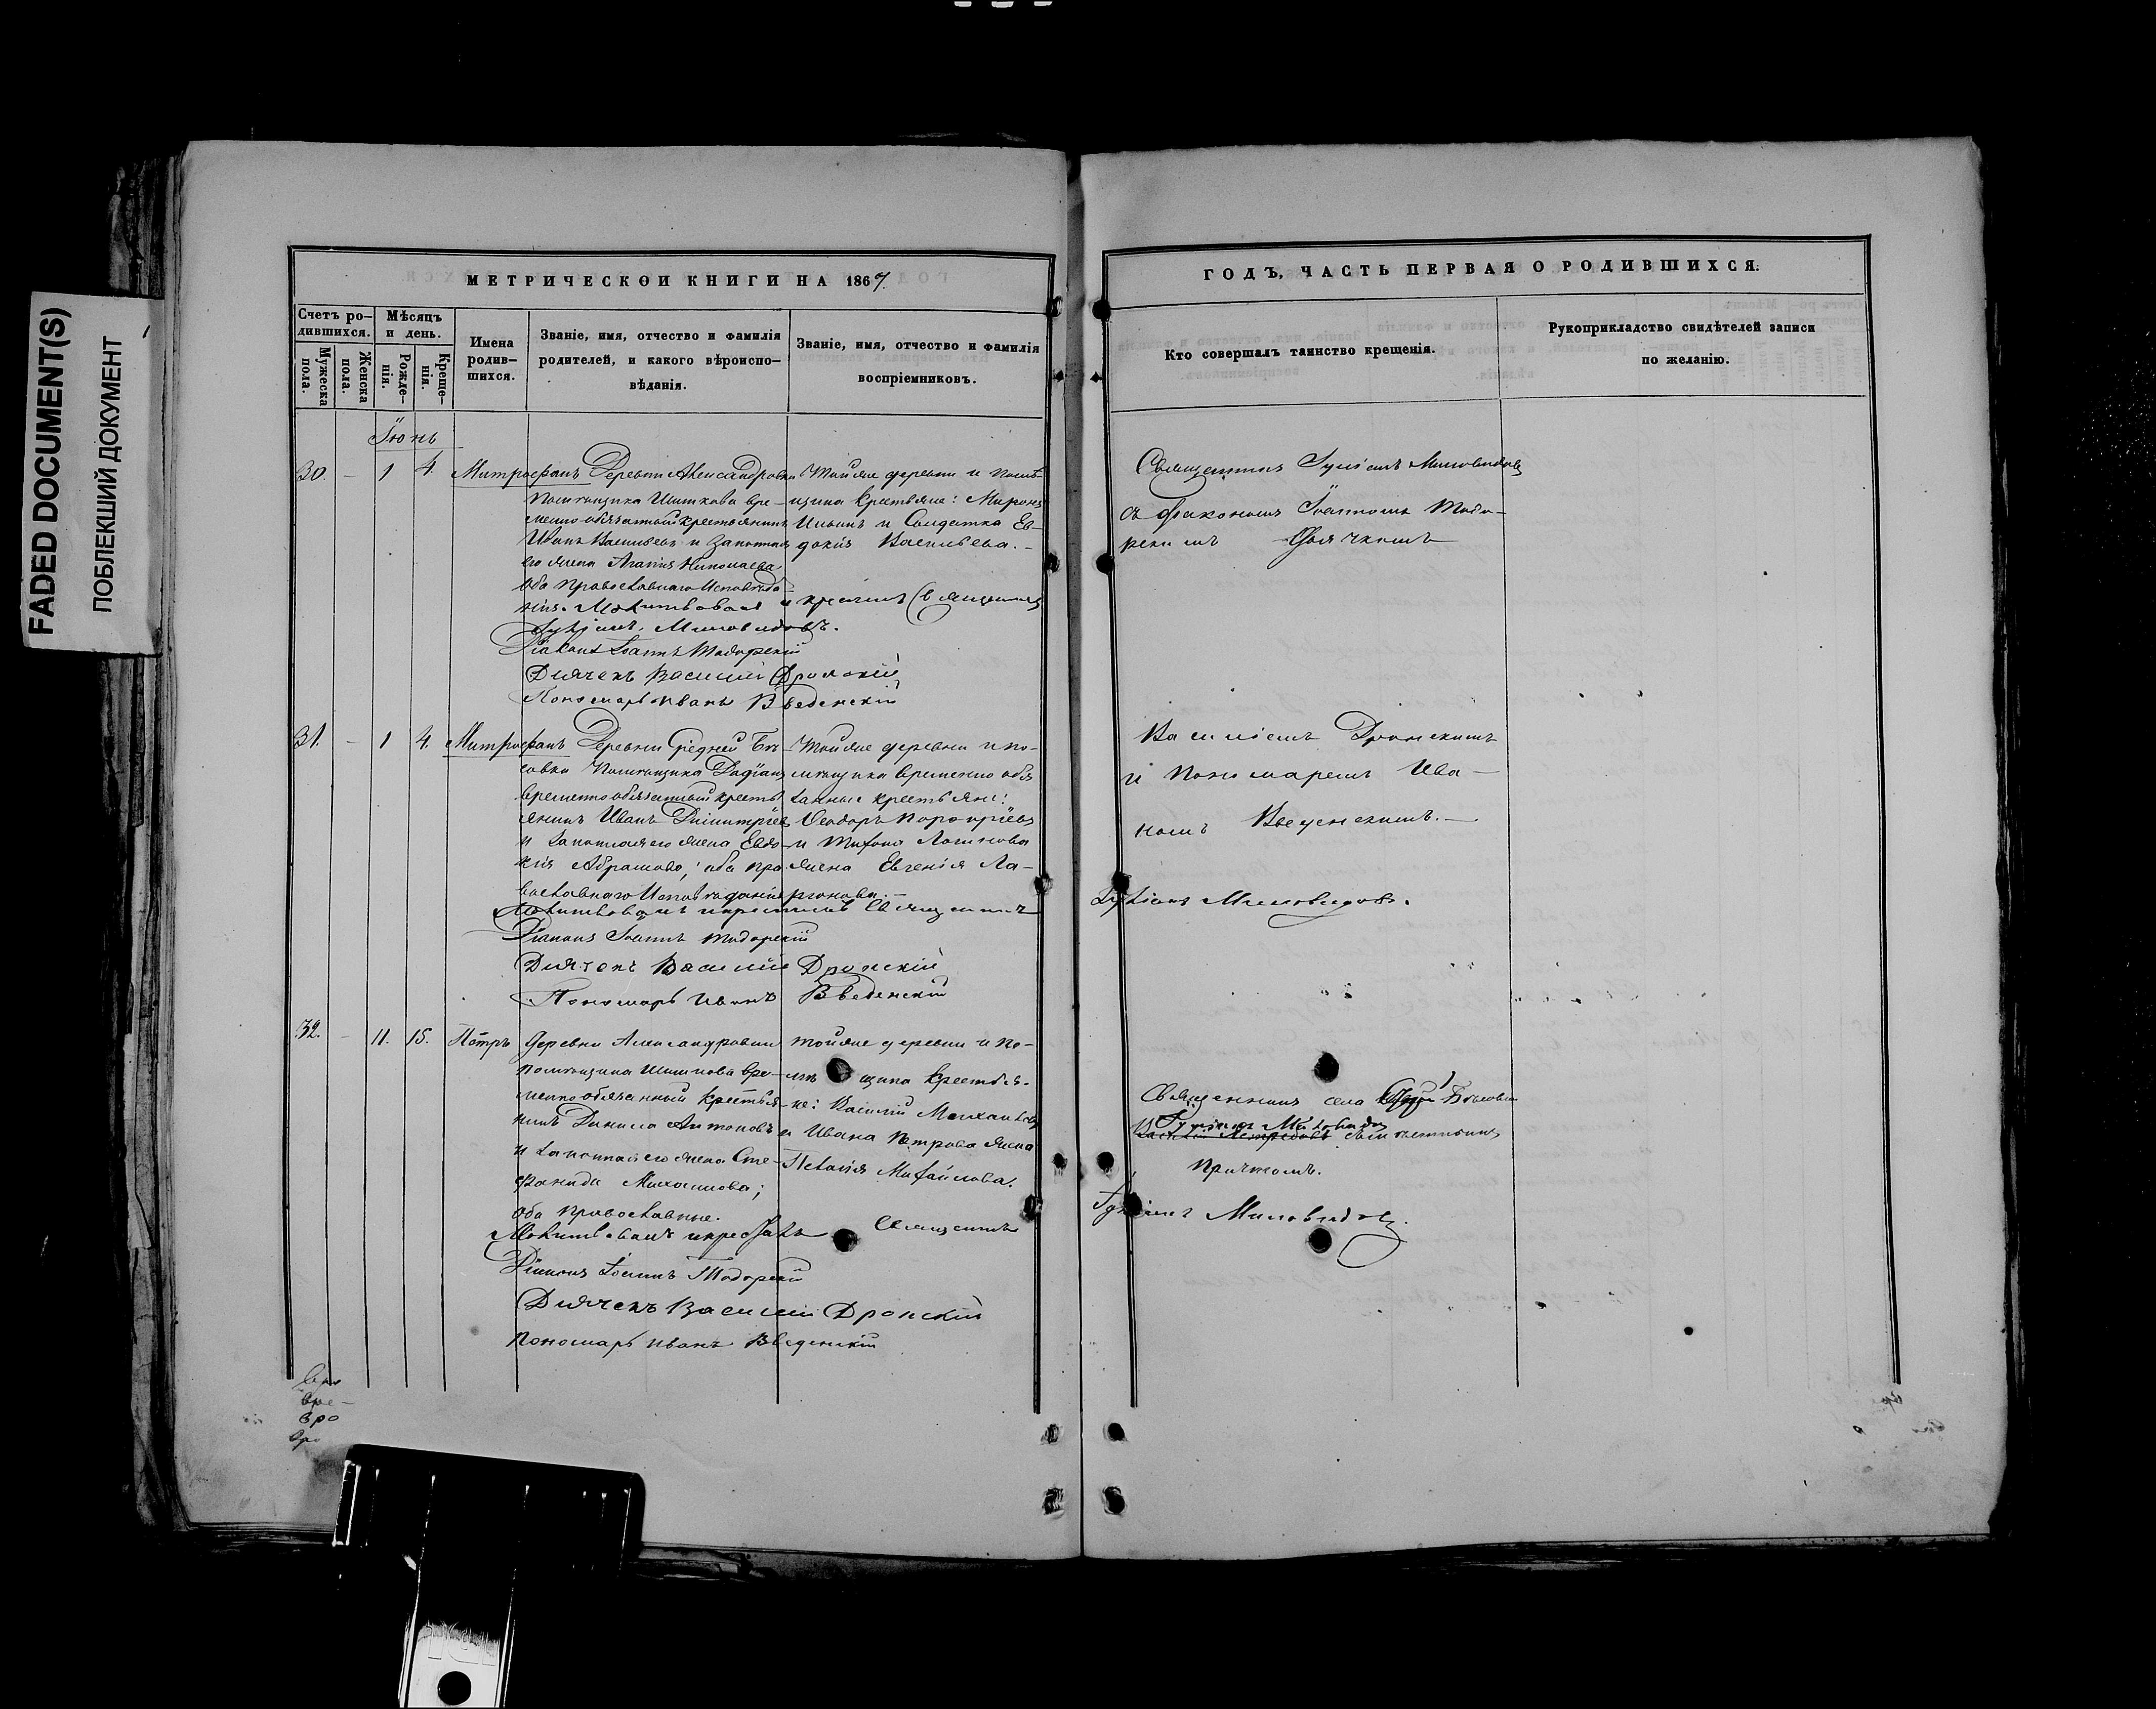 FADED DOCUMENT(S)
ПОБЛЕКШИЙ ДОКУМЕНТ
МЕТРИЧЕСКОЙ КНИГИ НА 1867
Счетъ ро-
дившихся.
Мужеска
пола.
Женска
пола.
Мѣсяцъ
и день.
Рожде-
нія.
Креще-
нія.
Имена
родив-
шихся.
Званіе, имя, отчество и фамилія
родителей, и какого вѣроиспо-
вѣданія.
Званіе, имя, отчество и фамилія
воспріемниковъ.
Іюнь
30. - 1 4. Митрофанъ
Деревни Александровки
помѣщика Шишкова вре-
менно обязанный крестьянинъ
Иванъ Васильевъ и законная
его жена Агапія Николаева
оба православнаго исповѣда-
нія. Молитвовалъ и крестилъ Священникъ
Миловидовъ.
Діаконъ Іоаннъ Тодорскій
Дьячекъ Василій Дронскій
Пономарь Иванъ Введенскій
Тойже деревни и помѣ-
щика крестьяне: Миронъ
Ильинъ и Солдатка Ев-
докія Васильева.-
31. - 1 4. Митрофанъ
Деревни Средней
помѣщика
временно обязанный кресть
янинъ Иванъ Димитріевъ
и законная его жена Евдо-
кія Абрамова; оба пра
вославнаго исповѣданія
Молитвовалъ и крестилъ Священникъ
Діаконъ Іоаннъ Тодорскій
Дьячекъ Василій Дронскій
Пономарь Иванъ Введенскій
Тойже деревни и по-
мѣщика временно обя
занные крестьяне:
Ѳеодоръ
жена Евгенія Ла-
ріонова.-
32. - 11. 15. Петръ
Деревни Александровки
помѣщика Шишкова вре-
менно обязанный крестья-
нинъ Данила Антоновъ
и законная его жена Сте-
фанида Михаилова;
оба православные.
Молитвовалъ и крестилъ Священникъ
Діаконъ Іоаннъ Тодорскій
Дьячекъ Василій Дронскій
Пономарь Иванъ Введенскій
тойже деревни и по-
мѣщика крестья-
не: Василій Михаиловъ
и Ивана Петрова жена
Пелагія Михайлова.
вре-
вро
ГОДЪ, ЧАСТЬ ПЕРВАЯ О РОДИВШИХСЯ.
Кто совершалъ таинство крещенія.
Рукоприкладство свидѣтелей записи
по желанію.
Священникъ Іуліанъ Миловидовъ
съ діакономъ Іоанномъ Тодо-
рскимъ Дьячкомъ
Василіемъ Дронскимъ
и пономаремъ Ива-
номъ Введенскимъ.-
Іуліанъ Миловидовъ.
Священникъ села
Іуліанъ Миловидовъ
причтомъ.
Іуліанъ Миловидовъ.